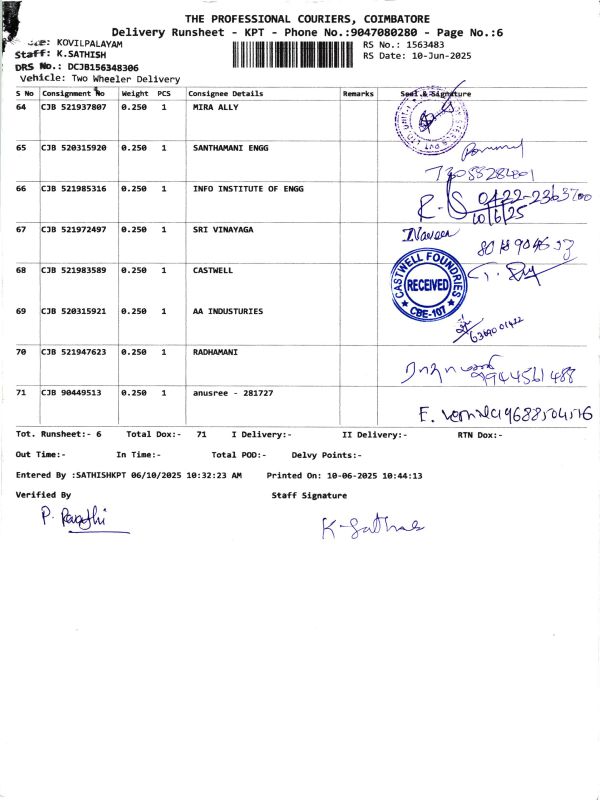 THE PROFESSIONAL COURIERS, COIMBATORE
Delivery Runsheet - KPT - Phone No.:9047080280 - Page No.:6
KOVILPALAYAM RS No.: 1563483
Staff: K.SATHISH RS Date: 10-Jun-2025
DRS No.: DCJB156348306
Vehicle: Two Wheeler Delivery
S No Consignment No Weight PCS Consignee Details Remarks Seal & Signature
64 CJB 521937807 0.250 1 MIRA ALLY
65 CJB 520315920 0.250 1 SANTHAMANI ENGG
66 CJB 521985316 0.250 1 INFO INSTITUTE OF ENGG 0422-2363700
10/6/25
67 CJB 521972497 0.250 1 SRI VINAYAGA Naveen
68 CJB 521983589 0.250 1 CASTWELL CASTWELL FOUNDRIES RECEIVED CBE-107
69 CJB 520315921 0.250 1 AA INDUSTURIES 6369001422
70 CJB 521947623 0.250 1 RADHAMANI 9944561488
71 CJB 90449513 0.250 1 anusree - 281727
Tot. Runsheet:- 6 Total Dox:- 71 I Delivery:- II Delivery:- RTN Dox:-
Out Time:- In Time:- Total POD:- Delvy Points:-
Entered By :SATHISHKPT 06/10/2025 10:32:23 AM Printed On: 10-06-2025 10:44:13
Verified By Staff Signature